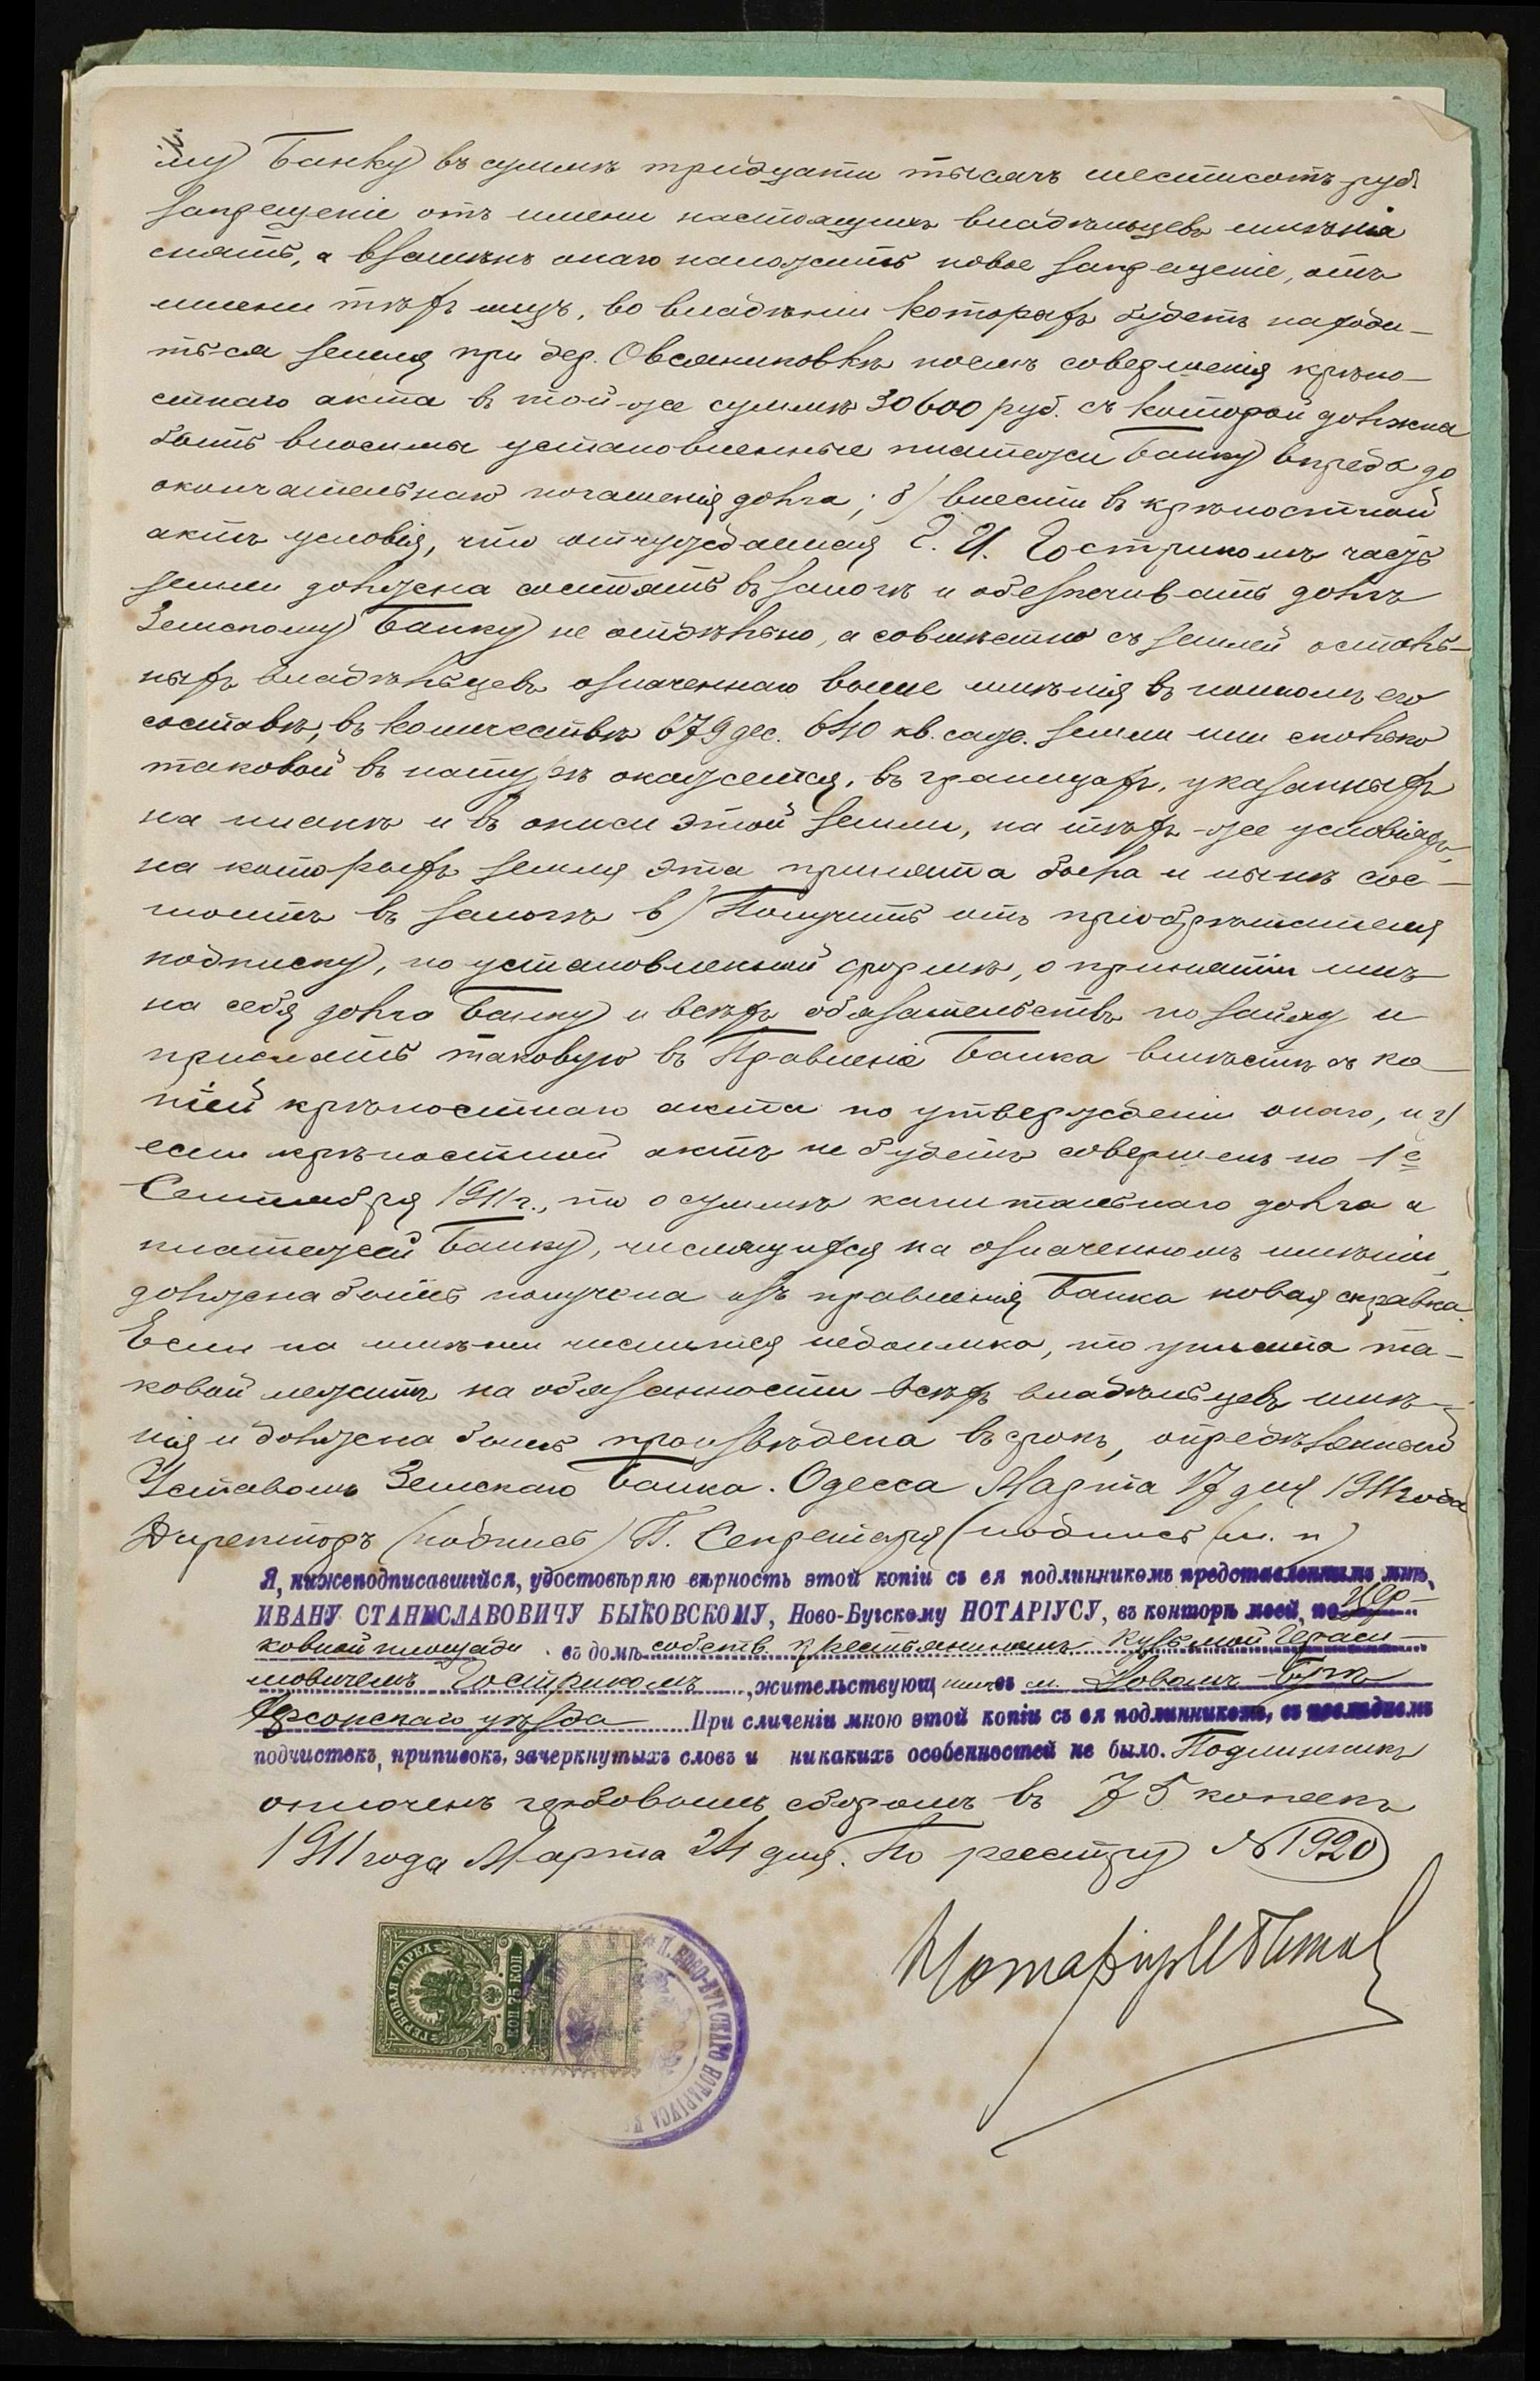 му Банку въ суммѣ тридцати тысячъ шестисотъ руб.
запрещеніе отъ имени настоящихъ владѣльцевъ имѣнія
снять, а взамѣнъ онаго наложить новое запрещеніе, отъ
имени тѣхъ лицъ, во владѣніи которыхъ будетъ находи-
ться земля при дер. Овсяниковкѣ послѣ совершенія крѣпо-
стнаго акта въ той-же суммѣ 30600 руб. съ которой должна
быть вносимы установленные платежи Банку впредь до
окончательнаго погашенія долга; б) внести въ крѣпостной
актъ условія, что отчуждаемая Г. И. Гострикомъ часть
земли должна состоять въ залогѣ и обезпечивать долгъ
Земскому Банку не отдѣльно, а совмѣстно съ землей осталь-
ныхъ владѣльцевъ означеннаго выше имѣнія въ полномъ его
составѣ, въ количествѣ 679 дес. 640 кв. саж. земли или сколько
таковой въ натурѣ окажется, въ границахъ, указанныхъ
на планѣ и въ описи этой земли, на тѣхъ-же условіяхъ,
на которыхъ земля эта принята была и нынѣ сос-
тоитъ въ залогѣ в) Получить отъ пріобрѣтателя
подписку, по установленной формѣ, о принятіи имъ
на себя долга Банку и всѣхъ обязательствъ по займу и
прислать таковую въ Правленіе Банка вмѣстѣ съ ко-
піей крѣпостнаго акта по утвержденіи онаго, и г)
если крѣпостной актъ не будетъ совершенъ по 1е
Сентября 1911 г., то о суммѣ капитальнаго долга и
платежей Банку, числящихся на означенномъ имѣніи,
должна быть получена изъ правленія Банка новая справка.
Если на имѣніи числится недоимка, то уплата та-
ковой лежитъ на обязанности всѣхъ владѣльцевъ имѣ-
нія и должна быть произведена въ срокъ, опредѣленный
Уставомъ Земскаго Банка. Одесса Марта 17 дня 1911 года
Директоръ (подпись) П. Секретаря (подпись) (м. п.)
Я, нижеподписавшійся, удостовѣряю вѣрность этой копіи съ ея подлинникомъ представленнымъ мнѣ,
ИВАНУ СТАНИСЛАВОВИЧУ БЫКОВСКОМУ, Ново-Бугскому НОТАРІУСУ, въ конторѣ моей, по Цер-
ковной площади въ домѣ собств. крестьяниномъ Кузьмой Гераси-
мовичемъ Гострикомъ, жительствующимъ въ м. Новомъ-Бугѣ
Херсонскаго уѣзда При сличеніи мною этой копіи съ ея подлинникомъ, въ послѣднемъ
подчистокъ, приписокъ, зачеркнутыхъ словъ и никакихъ особенностей не было. Подлинникъ
оплоченъ гербовымъ сборомъ въ 75 копѣекъ
1911 года Марта 24 дня. По реестру № 1920
Нотаріусъ
ГЕРБОВАЯ МАРКА
КОП 75 КОП
НОВО-БУГСКАГО НОТАРІУСА